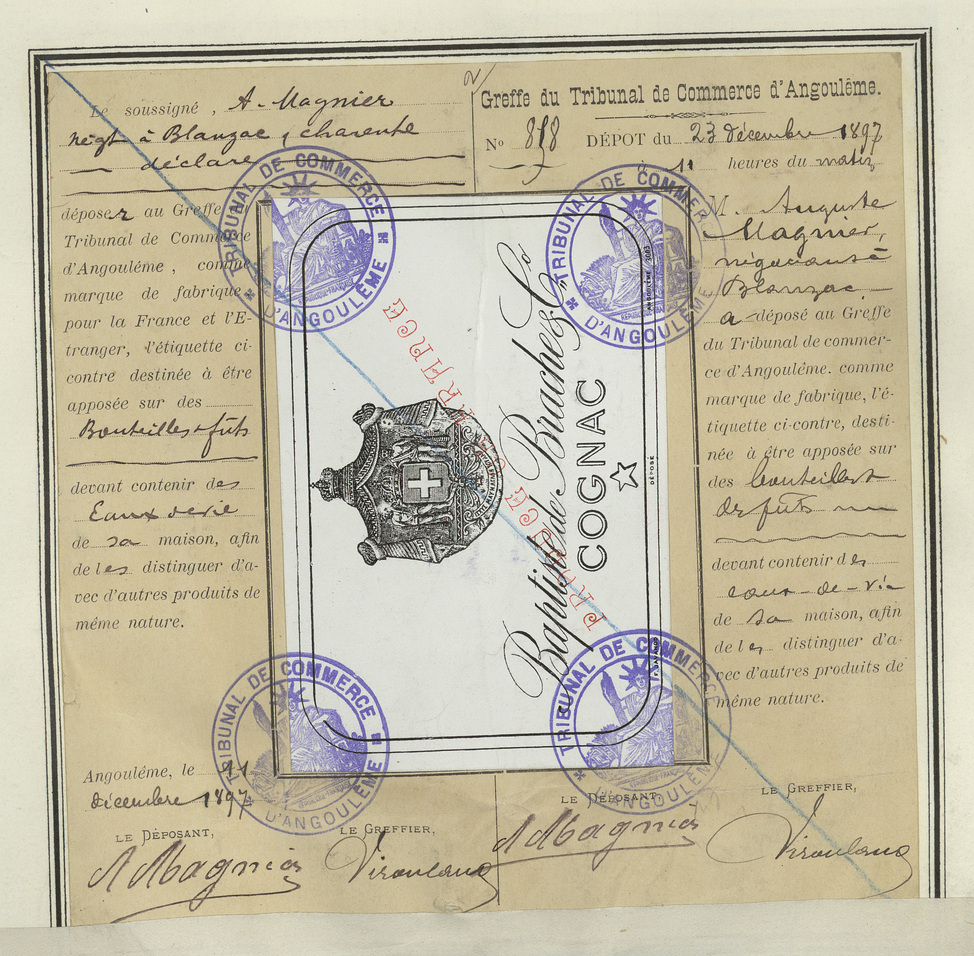 Le soussigné, A. Magnier
négt à Blanzac, charente
déclare
déposer au Greffe
Tribunal de Commerce
d'Angoulême, comme
marque de fabrique
pour la France et l'E-
tranger, l'étiquette ci-
contre destinée à être
apposée sur des
Bouteilles & futs
devant contenir des
Eaux de vie
de sa maison, afin
de les distinguer d'a-
vec d'autres produits de
même nature.
Angoulême, le
décembre 1897
LE DÉPOSANT,
LE GREFFIER,
A Magnier
Viroulaud
Baptiste de Brache & Co
COGNAC
DÉPOSÉ
TRIBUNAL DE COMMERCE
D'ANGOULÊME
TRIBUNAL DE COMMERCE
D'ANGOULÊME
TRIBUNAL DE COMMERCE
D'ANGOULÊME
TRIBUNAL DE COMMERCE
D'ANGOULÊME
2
Greffe du Tribunal de Commerce d'Angoulême.
No 858 DÉPOT du 23 décembre 1897
11 heures du matin
M. Auguste
Magnier,
négociant à
Blanzac
a déposé au Greffe
du Tribunal de commer-
ce d'Angoulême. comme
marque de fabrique, l'é-
tiquette ci-contre, desti-
née à être apposée sur
des bouteilles &
des futs
devant contenir des
eaux-de-vie
de sa maison, afin
de les distinguer d'a-
vec d'autres produits de
même nature.
LE DÉPOSANT,
LE GREFFIER,
A Magnier
Viroulaud